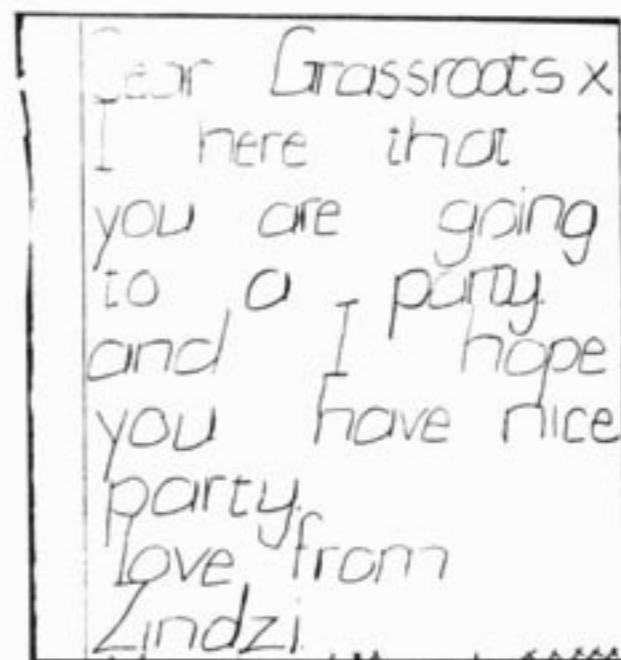 Dear Grassroots x
I here that
you are going
to a party.
and I hope
you have nice
party.
love from
Zindzi.